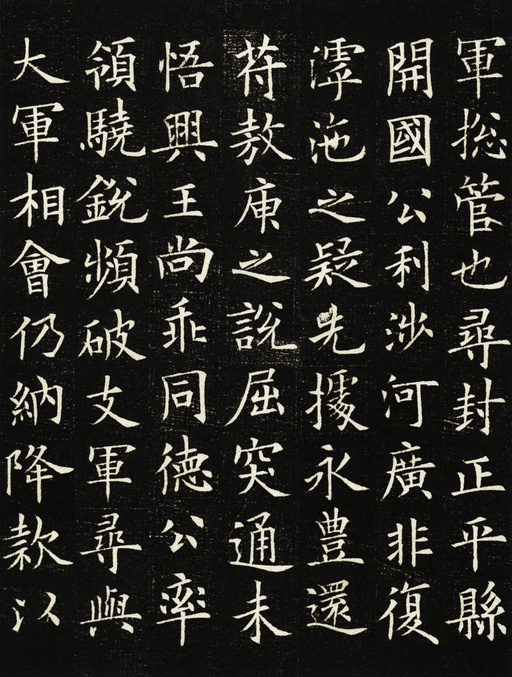 軍捴管也尋封正平縣
開國公利涉河廣非復
滹沲之疑先據永豊還
苻敖庾之說屈突通未
悟興王尚乖同德公率
領驍銳頻破支軍尋與
大軍相會仍納降款以